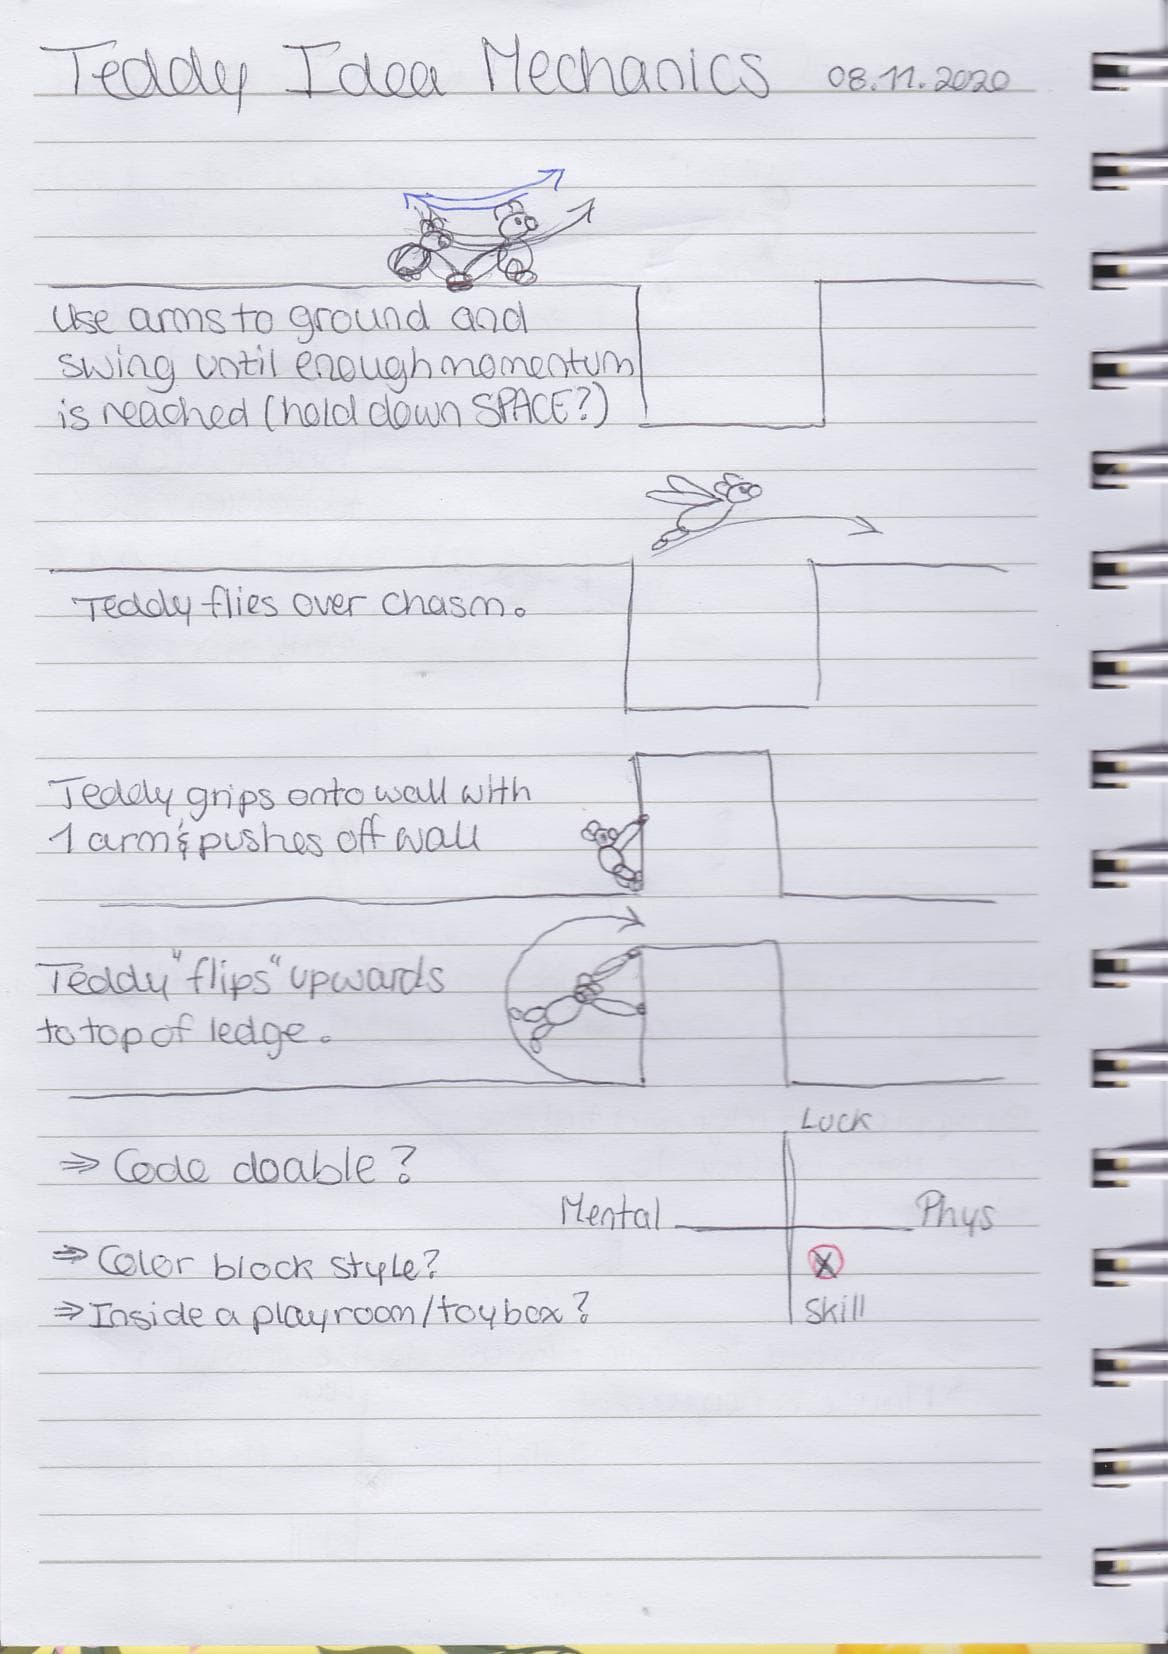 Teddy Idea Mechanics 08.11.2020
Use arms to ground and
swing until enough momentum
is reached (hold down SPACE?)
Teddy flies over chasm.
Teddy grips onto wall with
1 arm & pushes off wall
Teddy "flips" upwards
to top of ledge.
Luck
⇒ Code doable?
Mental Phys
⇒ Color block style?
X
⇒ Inside a playroom/toybox? Skill